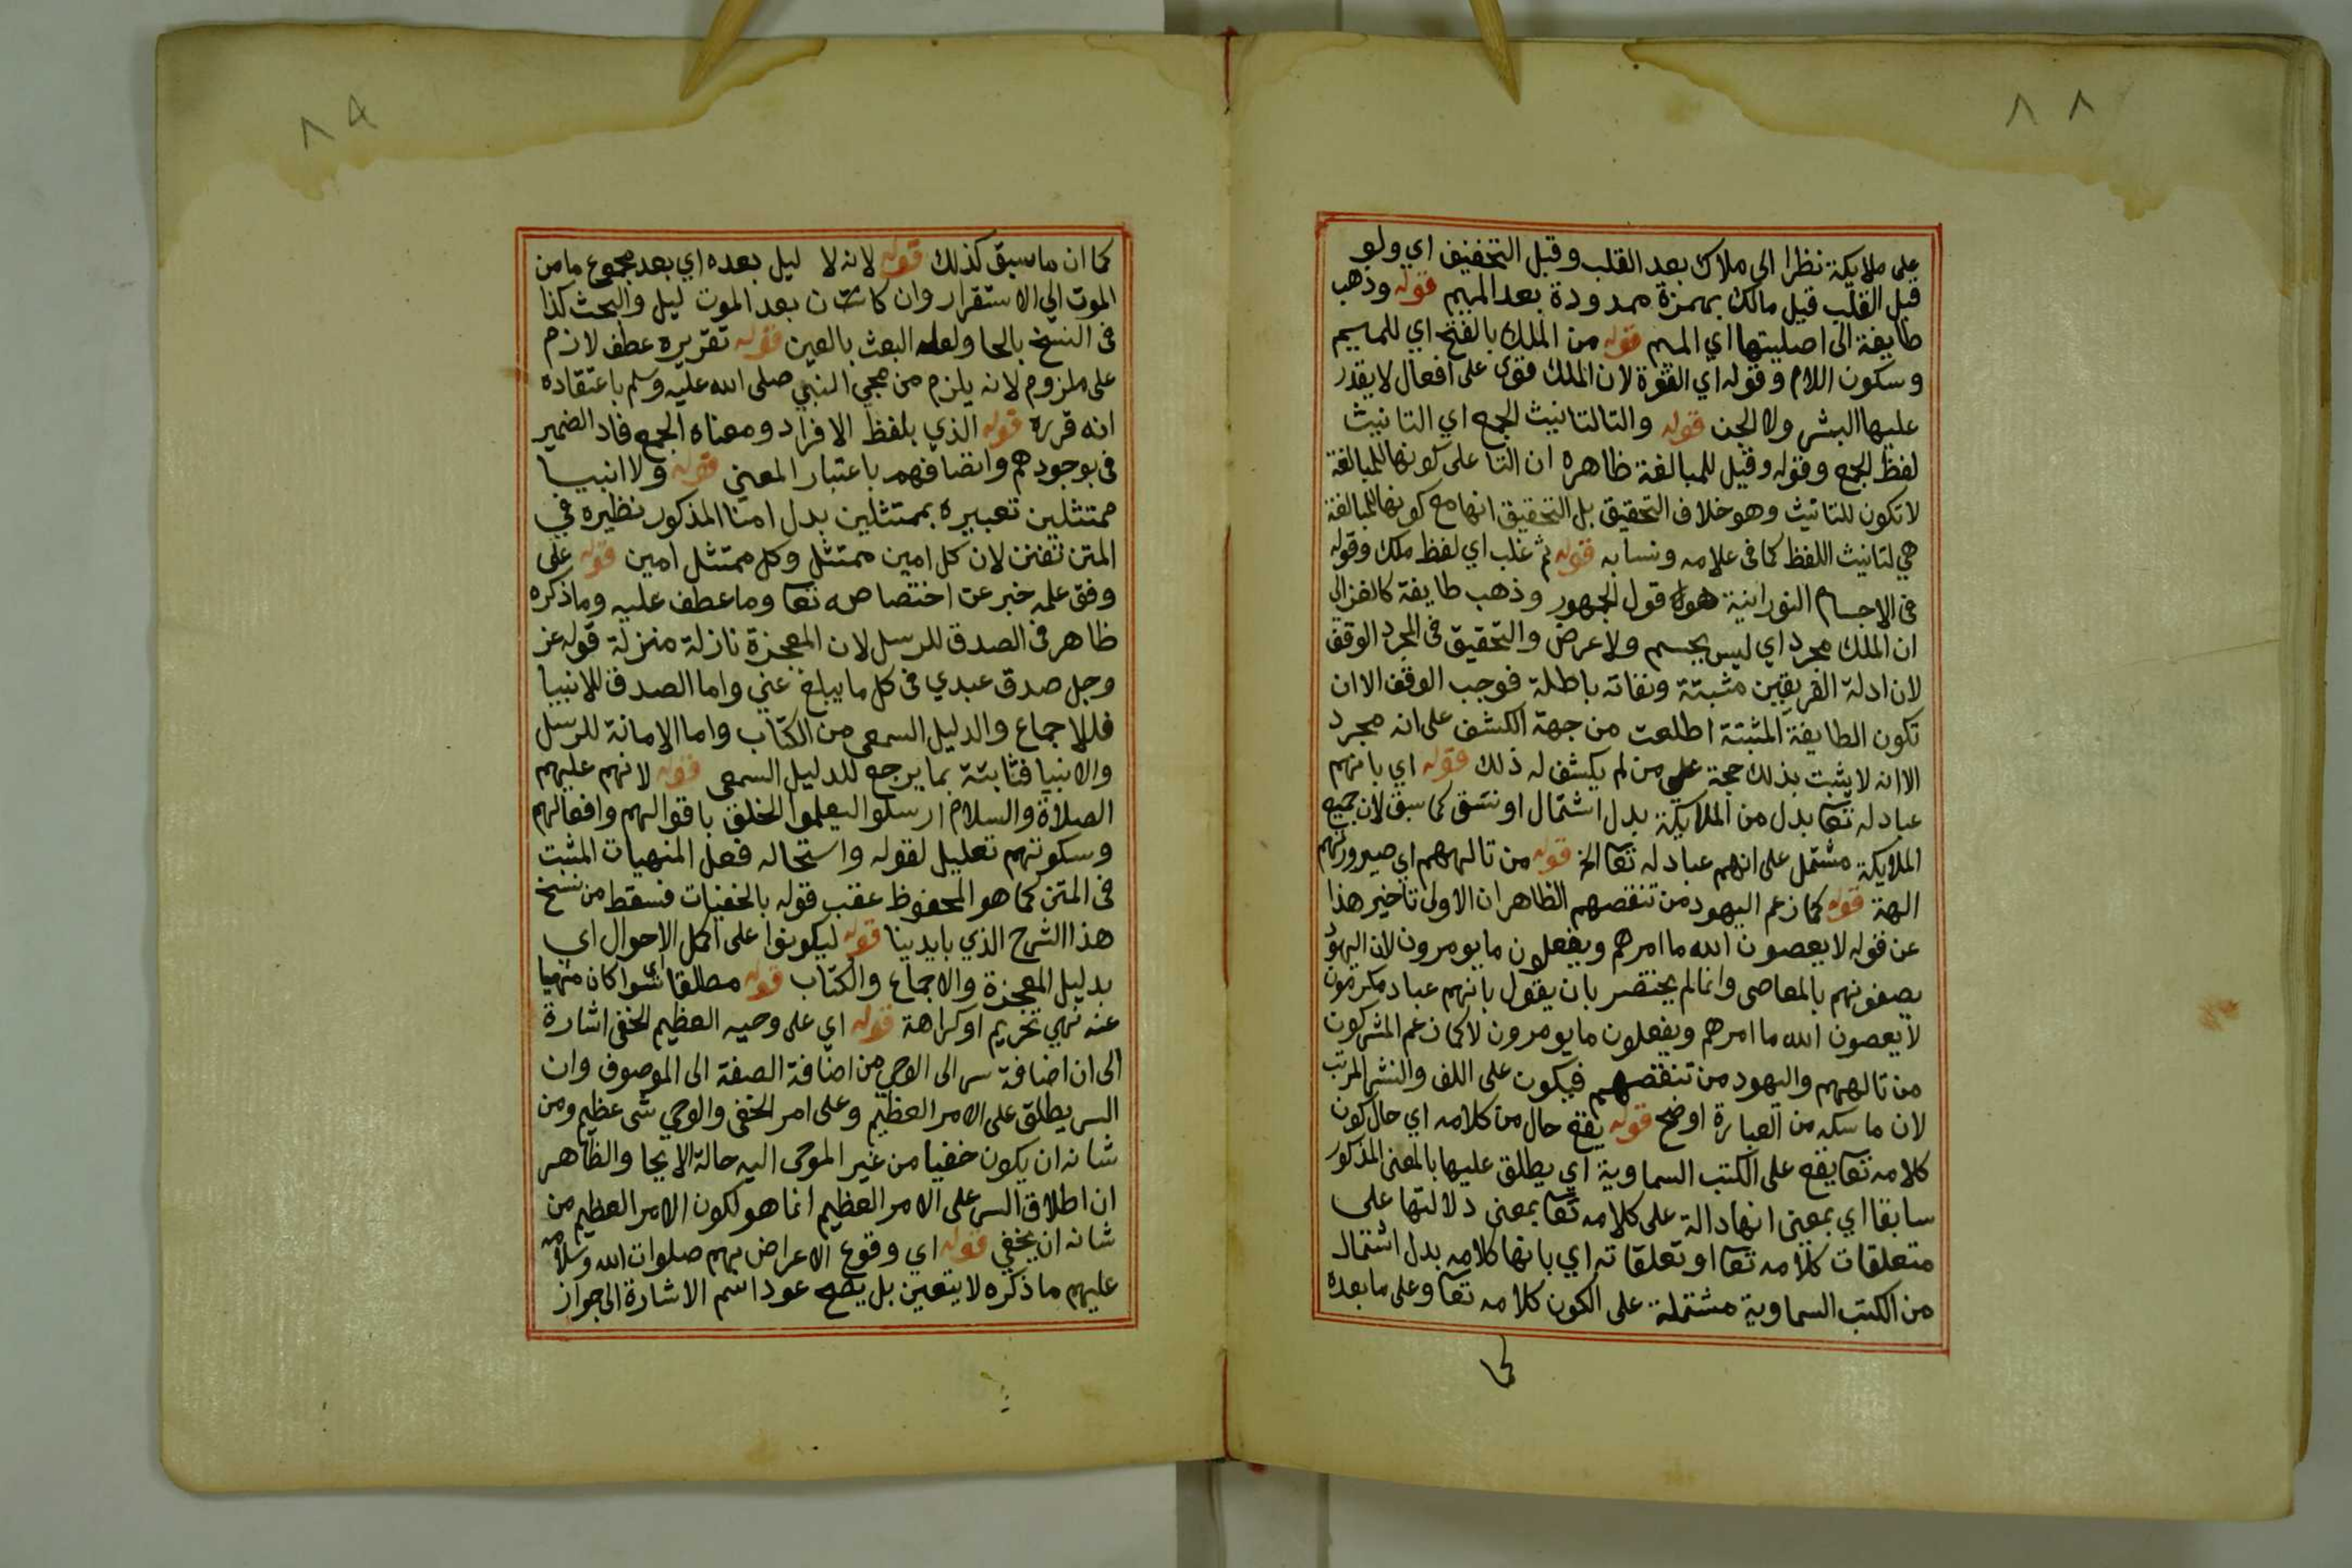 ٨٨
على ملايكة نظرا الى ملاك بعد القلب وقبل التخفيف اي ولو
قبل القلب قيل مالك بهمزة ممدودة بعد الميم قوله وذهب
طايفة الى اصليتها اي الميم قوله من الملك بالفتح اي للميم
وسكون اللام وقوله اي القوة لان الملك قوى على افعال لا يقدر
عليها البشر ولا الجن قوله والتا لتانيث الجمع اي التانيث
لفظ الجمع وقوله وقيل للمبالغة ظاهره ان التا على كونها للمبالغة
لا تكون للتانيث وهو خلاف التحقيق بل التحقيق انها مع كونها للمبالغة
هي لتانيث اللفظ كما في علامه ونسابه قوله ثم غلب اي لفظ ملك وقوله
في الاجسام النورانية هو قول الجمهور وذهب طايفة كالغزالي
ان الملك مجرد اي ليس بجسم ولا عرض والتحقيق في المجرد الوقف
لان ادلة الفريقين مثبتة ونفاته باطلة فوجب الوقف الا ان
تكون الطايفة المثبتة اطلعت من جهة الكشف على انه مجرد
الا انه لا يثبت بذلك حجة على من لم يكشف له ذلك قوله اي بانهم
عباد له تعا بدل من الملايكة بدل اشتمال او نسق كما سبق لان جميع
الملايكة مشتمل على انهم عباد له تعا الخ قوله من تالههم اي صيرورتهم
الهة قوله كما زعم اليهود من تنقصهم الظاهر ان الاولى تاخير هذا
عن قوله لا يعصون الله ما امرهم ويفعلون ما يومرون لان اليهود
يصفونهم بالمعاصى وانما لم يختصر بان يقول بانهم عباد مكرمون
لا يعصون الله ما امرهم ويفعلون ما يومرون لا كما زعم المشركون
من تالههم واليهود من تنقصهم فيكون على اللف والنشر المرتب
لان ما سكه من العبارة اوضح قوله يقع حال من كلامه اي حال كون
كلامه تعا يقع على الكتب السماوية اي يطلق عليها بالمعنى المذكور
سابقا اي بمعنى انها دالة على كلامه تعا بمعنى دلالتها على
متعلقات كلامه تعا او تعلقاته اي بانها كلامه بدل اشتمال
من الكتب السماوية مشتملة على الكون كلامه تعا وعلى ما بعده
كما
٨٩
كما ان ما سبق كذلك قوله لانه لا ليل بعده اي بعد مجموع ما من
الموت الى الاستقرار وان كان بعد الموت ليل والبحث كذا
في النسخ بالحا ولعله البعث بالعين قوله تقريره عطف لازم
على ملزوم لانه يلزم من مجي النبي صلى الله عليه وسلم باعتقاده
انه قرره قوله الذي بلفظ الافراد ومعناه الجمع فاد الضمير
في بوجودهم واتصافهم باعتبار المعنى قوله ولا انبيا
ممتثلين تعبيره بممتثلين بدل امنا المذكور نظيره في
المتن تفنن لان كل امين ممتثل وكل ممتثل امين قوله على
وفق علمه خبر عن اختصاصه تعا وما عطف عليه وما ذكره
ظاهر في الصدق للرسل لان المعجزة نازلة منزلة قوله عز
وجل صدق عبدي في كل ما يبلغ عني واما الصدق للانبيا
فللاجماع والدليل السمعى من الكتاب واما الامانة للرسل
والانبيا فثابتة بما يرجع للدليل السمعى قوله لانهم عليهم
الصلاة والسلام ارسلوا ليعلموا الخلق باقوالهم وافعالهم
وسكوتهم تعليل لقوله واستحاله فعل المنهيات المثبت
في المتن كما هو المحفوظ عقب قوله بالخفيات فسقط من نسخ
هذا الشرح الذي بايدينا قوله ليكونوا على اكمل الاحوال اي
بدليل المعجزة والاجماع والكتاب قوله مطلقا اي سوا كان منهيا
عنه نهي تحريم او كراهة قوله اي على وحيه العظيم الخفى اشارة
الى ان اضافة سر الى الوحي من اضافة الصفة الى الموصوف وان
السر يطلق على الامر العظيم وعلى امر الخفى والوحي شى عظيم ومن
شانه ان يكون خفيا من غير الموحى اليه حالة الايحا والظاهر
ان اطلاق السر على الامر العظيم انما هو لكون الامر العظيم من
شانه ان يخفي قوله اي وقوع الاعراض بهم صلوات الله وسلامه
عليهم ما ذكره لا يتعين بل يصح عود اسم الاشارة الى جواز